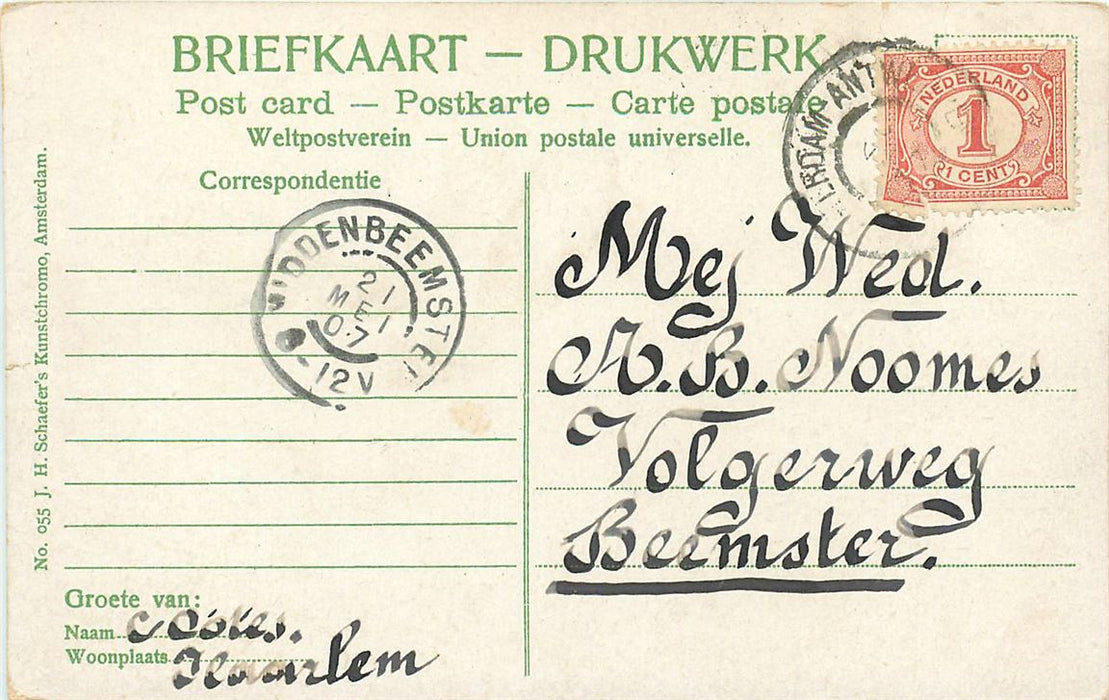 BRIEFKAART — DRUKWERK
Post card — Postkarte — Carte postale
Weltpostverein — Union postale universelle.
Correspondentie
NEDERLAND
1
1 CENT
ERDAM ANTW
MIDDENBEEMSTER
21
MEI
07
-12V
Mej Wed.
A.B. Noomes
Volgerweg
Beemster.
No. 055 J. H. Schaefer's Kunstchromo, Amsterdam.
Groete van:
Naam
Woonplaats Haarlem